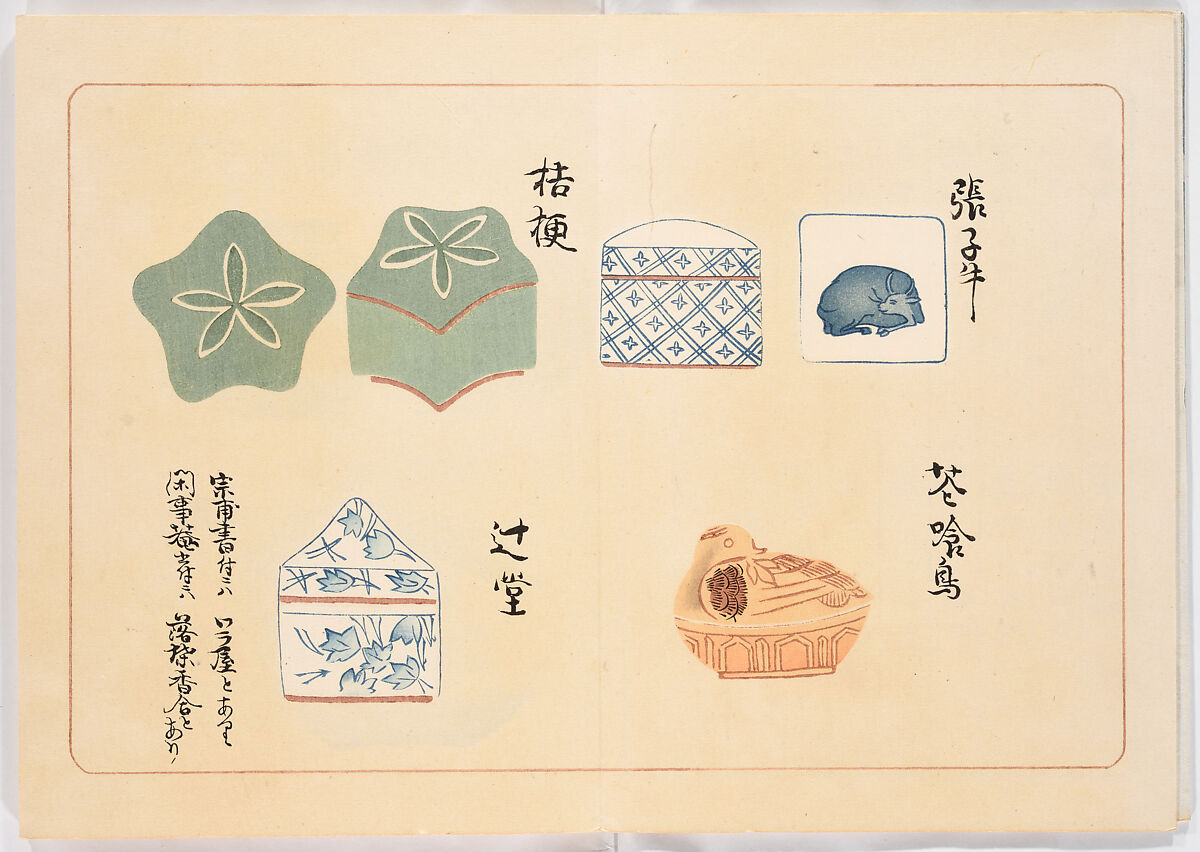 張子牛
花喰鳥
桔梗
辻堂
宗甫書付ニハ いつ屋とあり
閑事菴書付ニハ 落葉香合とあり